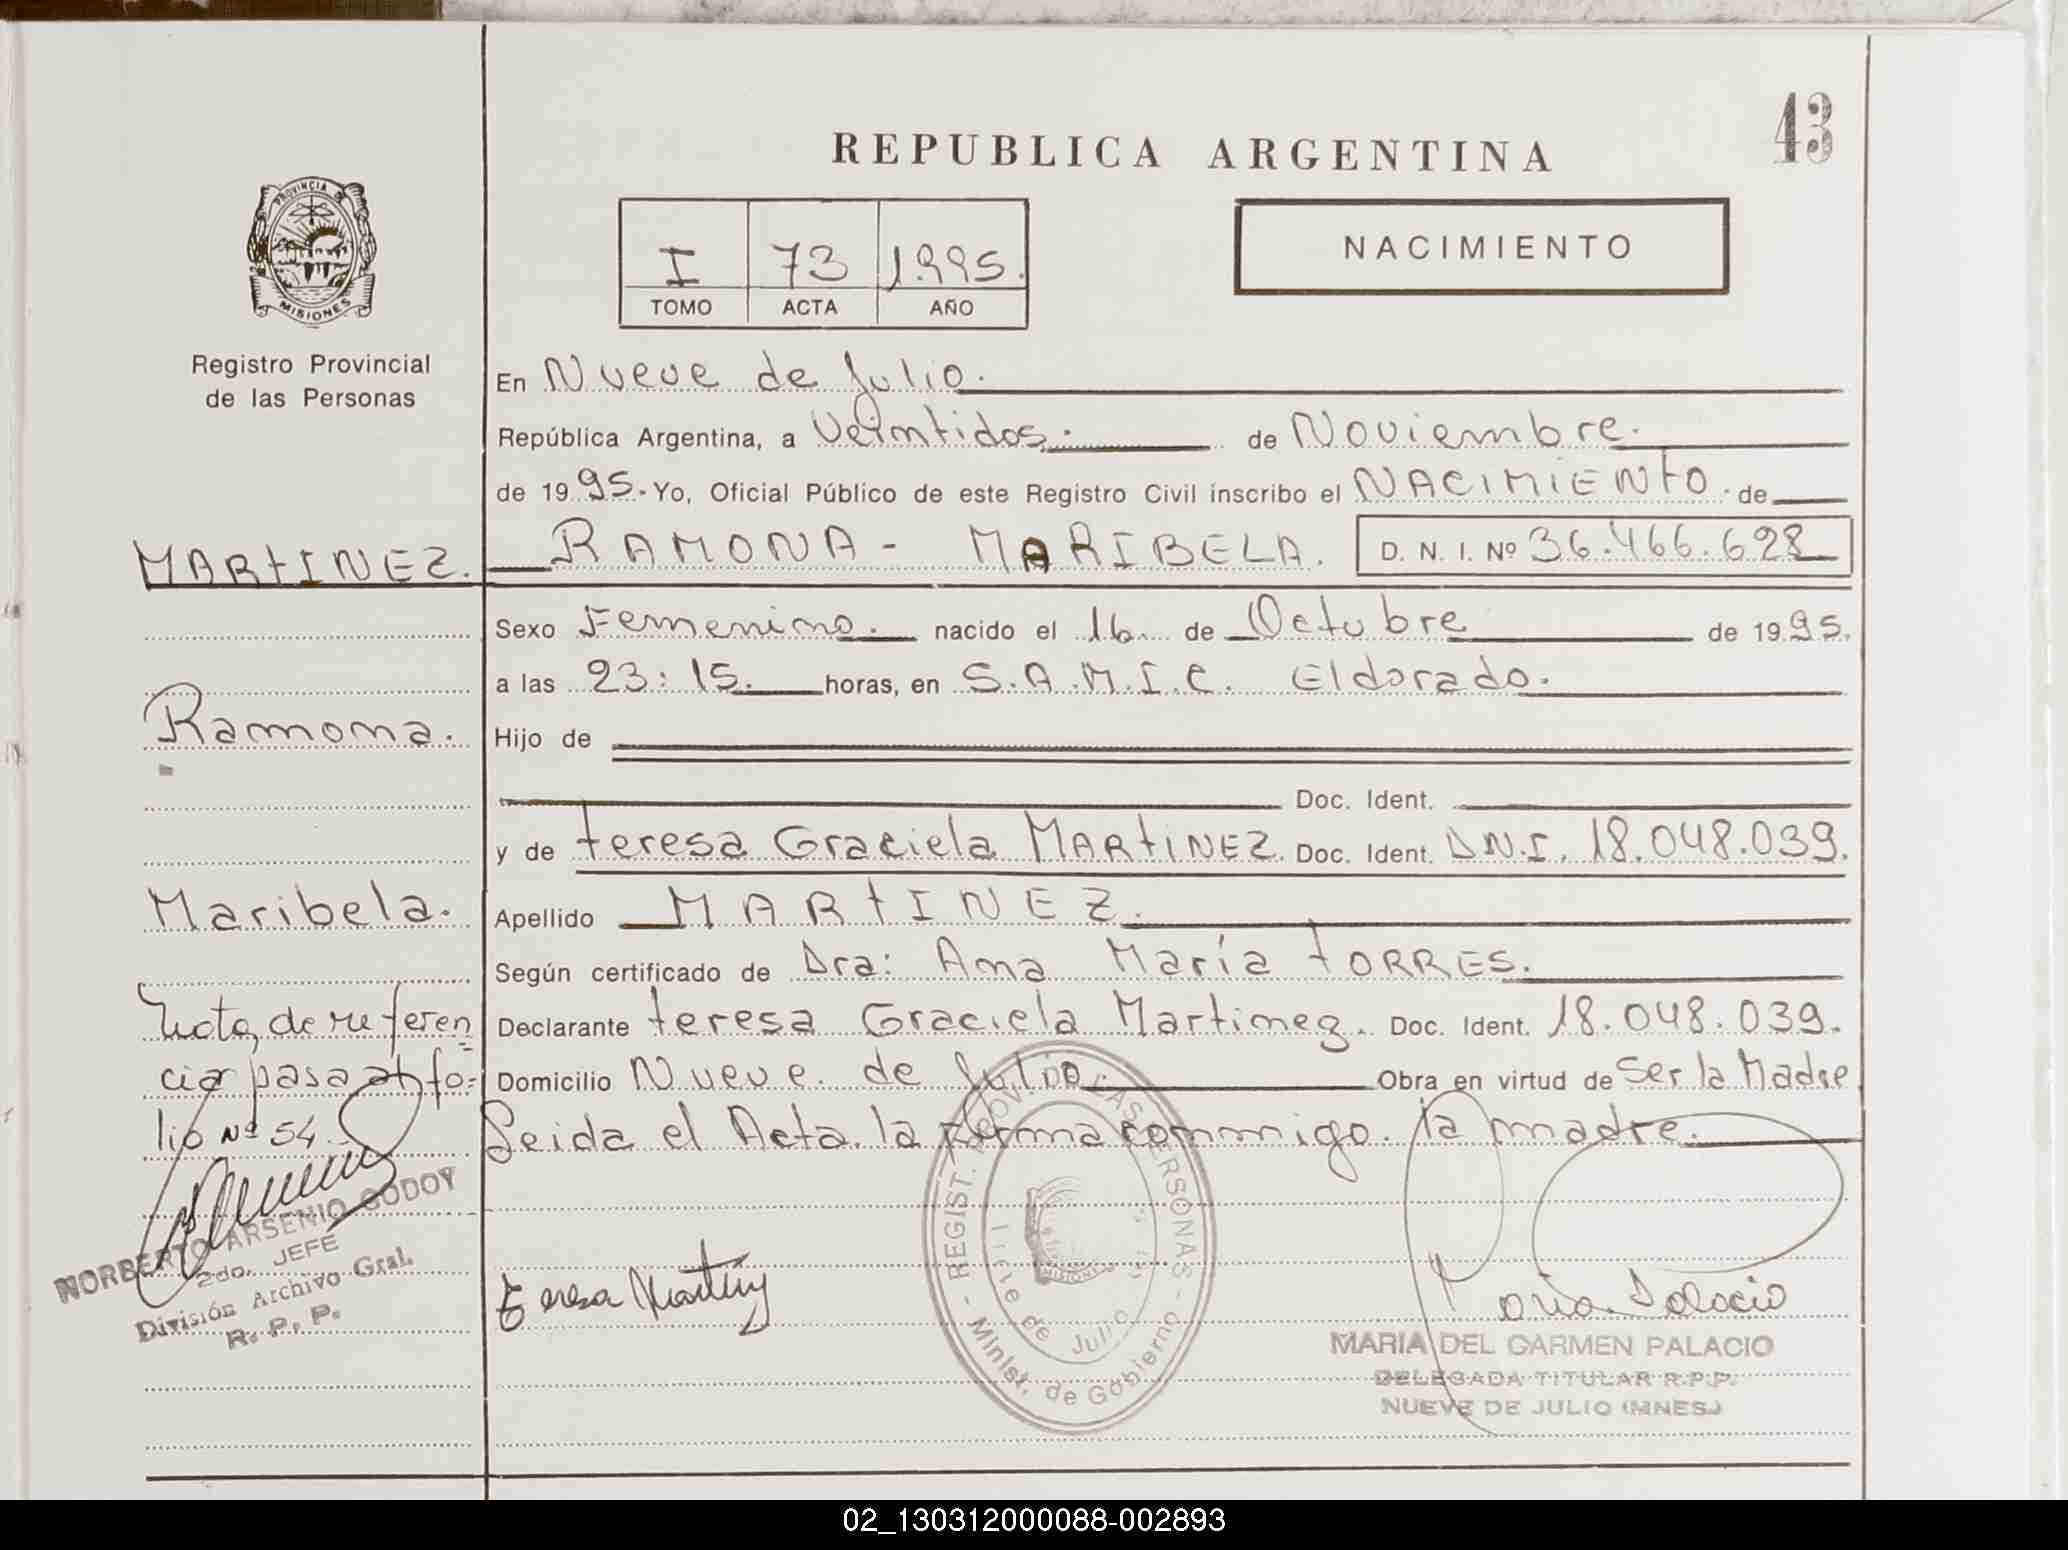 43
REPUBLICA ARGENTINA
PROVINCIA DE
MISIONES
Registro Provincial
de las Personas
I 73 1995.
TOMO ACTA AÑO
NACIMIENTO
En Nueve de Julio.
República Argentina, a Veintidos. de Noviembre.
de 1995. Yo, Oficial Público de este Registro Civil inscribo el NACIMIENTO. de
MARTINEZ. RAMONA - MARIBELA. D. N. I. Nº 36.466.628
Sexo Femenino. nacido el 16 de Octubre de 1995.
a las 23:15. horas, en S.A.M.I.C. Eldorado.
Ramona.
Hijo de
Doc. Ident.
y de Teresa Graciela MARTINEZ. Doc. Ident. D.N.I. 18.048.039.
Maribela.
Apellido MARTINEZ.
Según certificado de Dra: Ana María TORRES.
Declarante Teresa Graciela Martinez. Doc. Ident. 18.048.039.
Domicilio Nueve de Julio. Obra en virtud de Ser la Madre
Leida el Acta la firma conmigo la madre.
Nota de referen
cia pasa al fo=
lio Nº 54.
NORBERTO ARSENIO GODOY
2do. JEFE
División Archivo Gral.
R. P. P.
Teresa Martinez
REGIST. PROV. DE LAS PERSONAS - Minist. de Gobierno -
Nueve de Julio
MISIONES
Maria Palacio
MARIA DEL CARMEN PALACIO
DELEGADA TITULAR R.P.P.
NUEVE DE JULIO (MNES.)
02_130312000088-002893